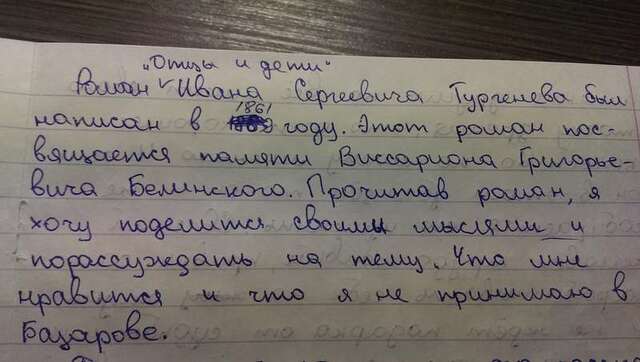 „Отцы и дети"
Роман Ивана Сергеевича Тургенева был
написан в 1861 году. Этот роман пос-
вящается памяти Виссариона Григорье-
вича Белинского. Прочитав роман, я
хочу поделится своими мыслями и
порассуждать на тему. Что мне
нравится и что я не принимаю в
Базарове.